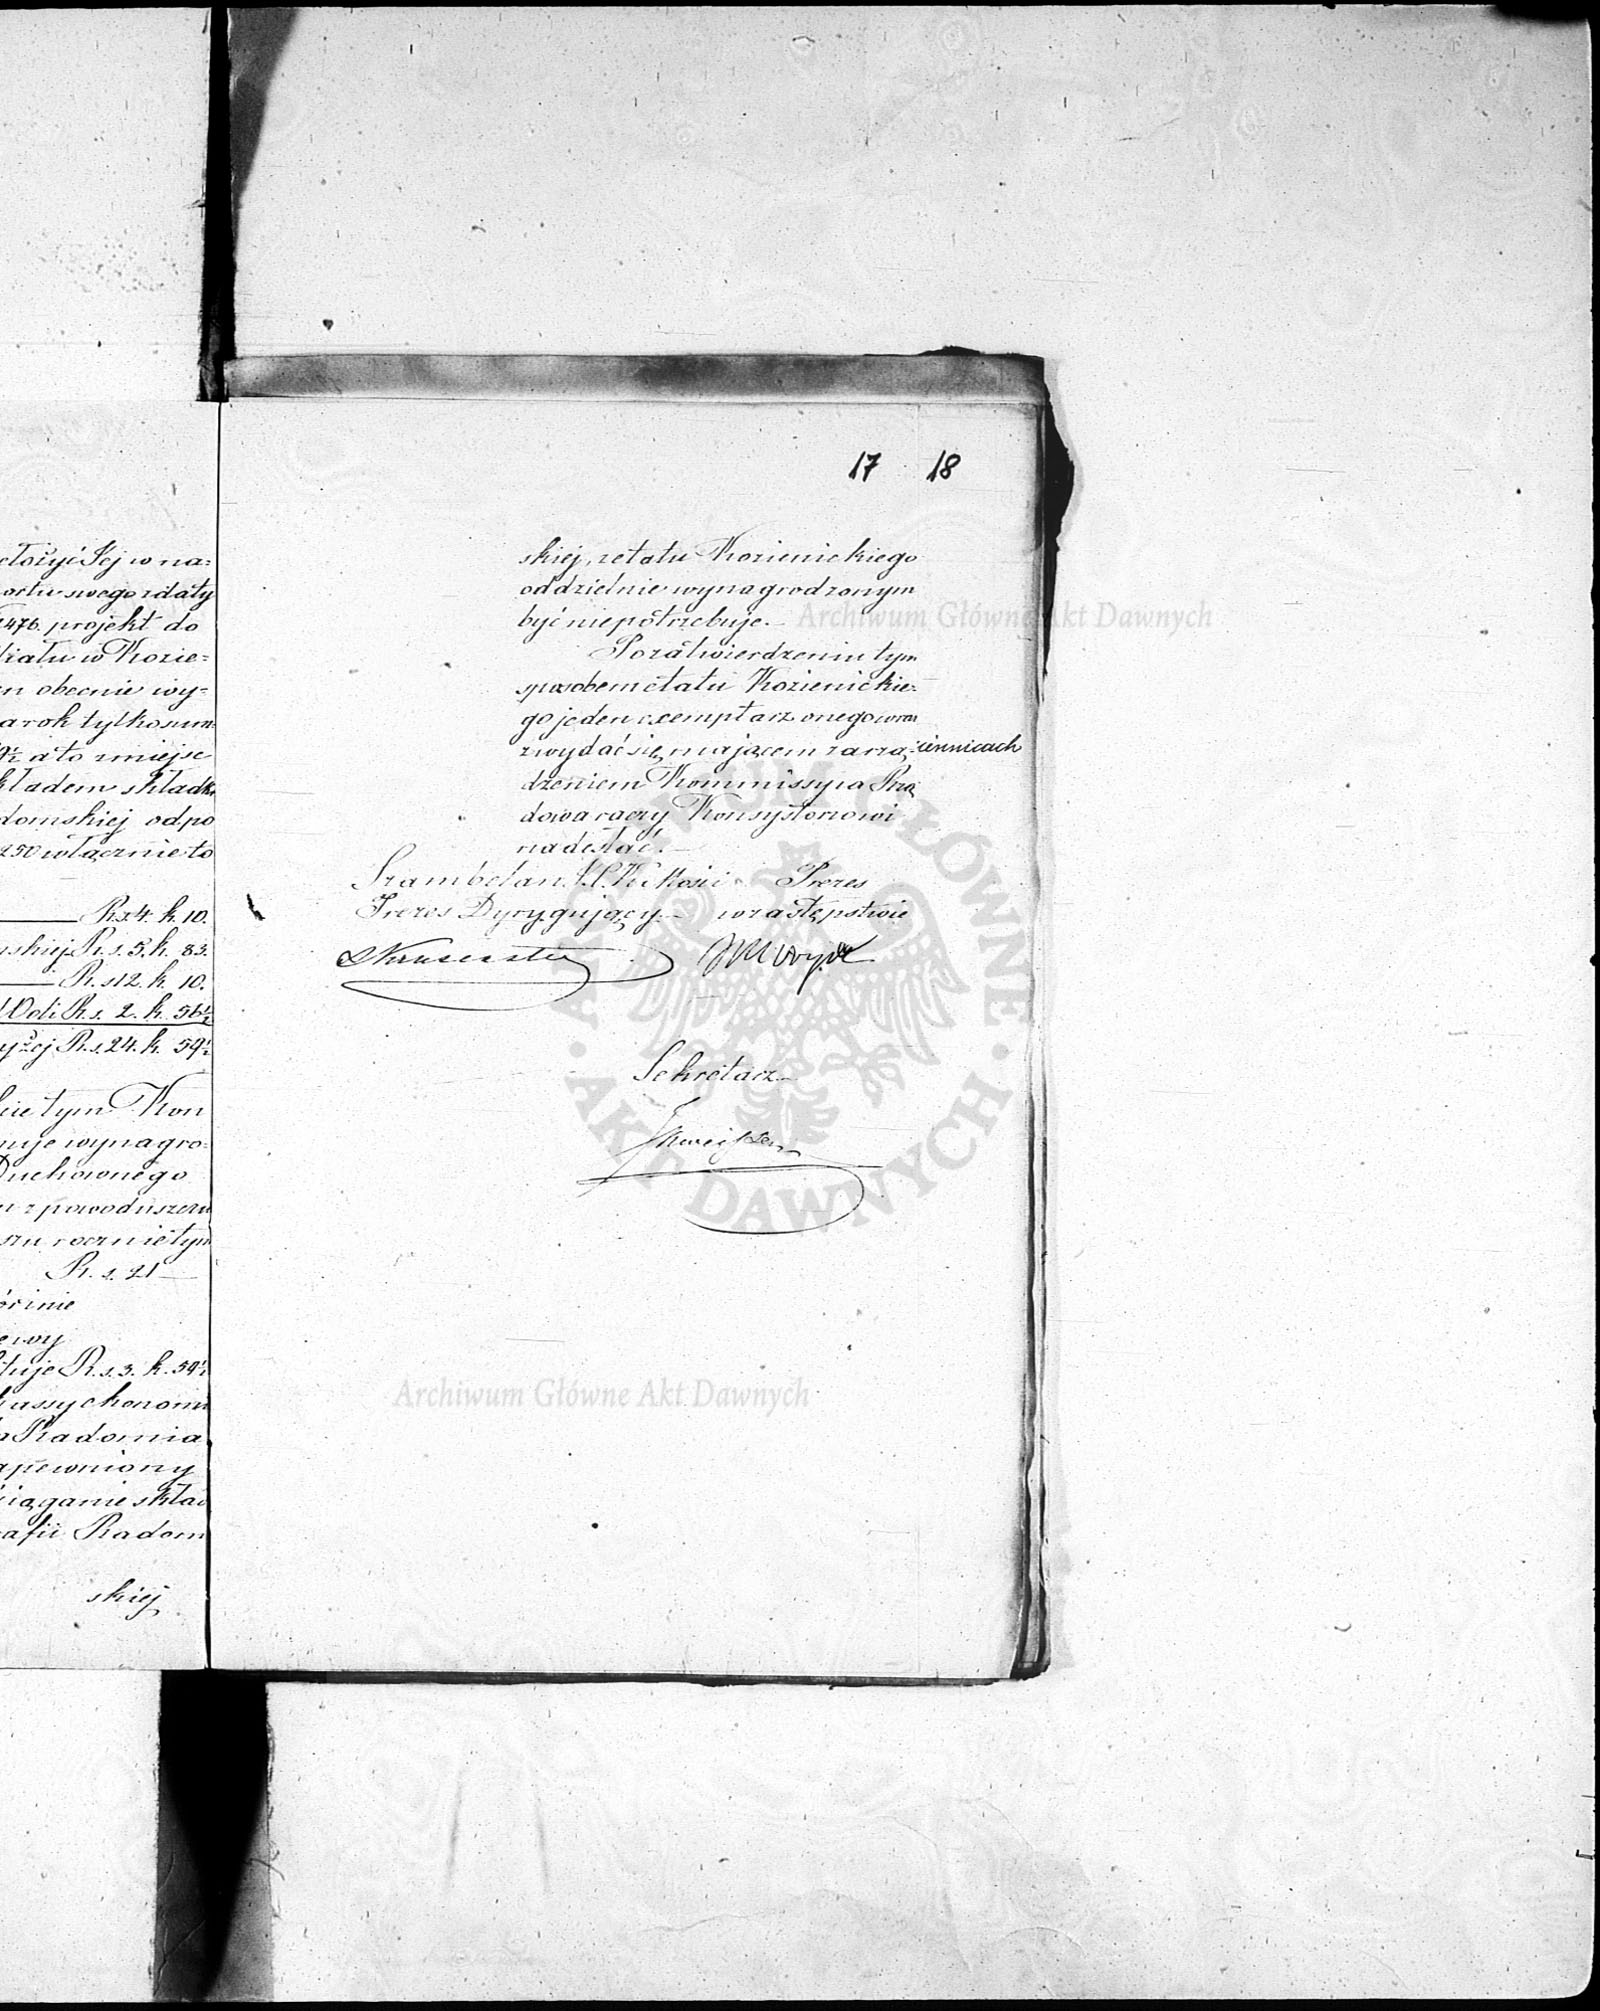 łożyć Jej w na=
ortu swego z daty
476. projekt do
Filiału w Kozie=
n obecnie wy=
a rok tylko sum
9½ a to z miejsc
kładem składki
domskiej odpo
250 włącznie to
Rs 4. k. 10.
skiej R.s. 5. k. 83.
R. s 12. k. 10.
Woli R.s. 2. k. 56½
yżej R.s. 24. k. 59½
tym Kon
nuje wynagro=
Duchownego
z powodu szczu
szu rocznie tym
R. s. 21 —
ewy
tuje R.s. 3. k. 59½
Kassy ekonomi
Radomia
apewniony
ciąganie skład
afii Radom
skiej
17 18
skiej, z etatu Kozienickiego
oddzielnie wynagrodzonym
być nie potrzebuje.—
Po zatwierdzeniu tym
sposobem etatu Kozienickie=
go jeden exemplarz onego wraz
z wydać się mającem zarzą=
dzeniem Kommissyia Rzą
dowa raczy Konsystorzowi
nadesłać.—
Szambelan J. C. K. Mości Prezes
Prezes Dyrygujący.— w zastępstwie
Sekretarz—
Archiwum Główne Akt Dawnych
Archiwum Główne Akt Dawnych
ARCHIWUM GŁÓWNE · AKT DAWNYCH ·